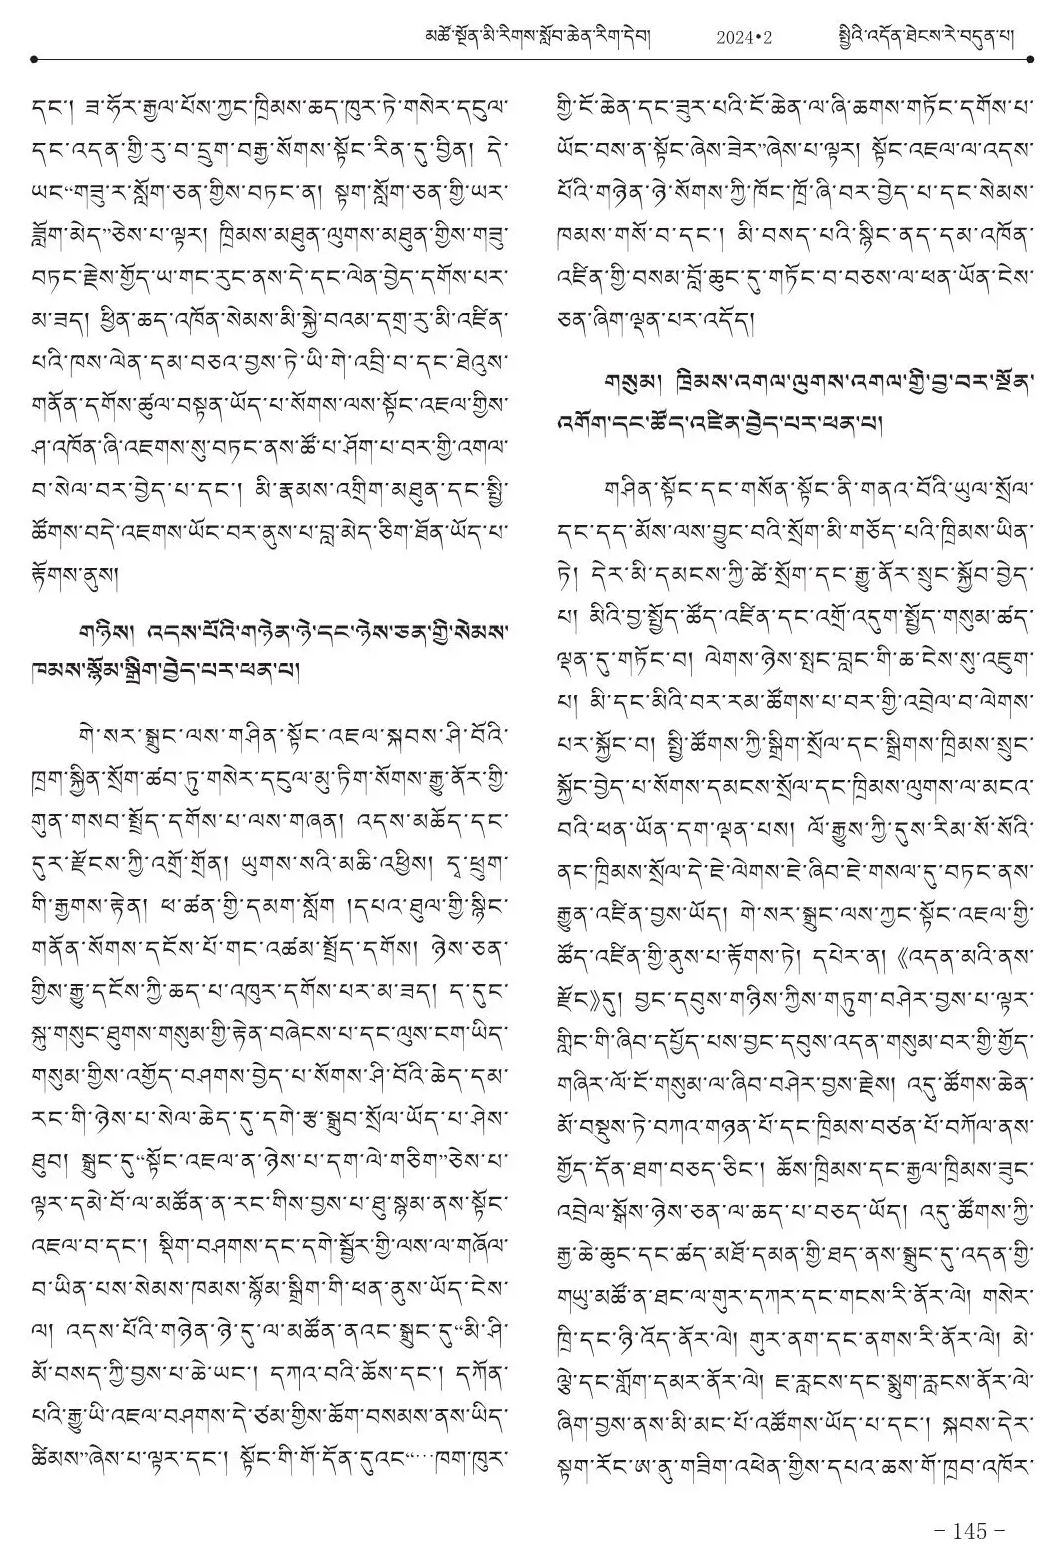 མཚོ་སྔོན་མི་རིགས་སློབ་ཆེན་རིག་དེབ། 2024•2 སྤྱིའི་འདོན་ཐེངས་རེ་བདུན་པ།
དང་། ཟ་ཧོར་རྒྱལ་པོས་ཀྱང་ཁྲིམས་ཆད་ཁུར་ཏེ་གསེར་དངུལ་
དང་འདན་གྱི་རུ་བ་དྲུག་བརྒྱ་སོགས་སྟོང་རིན་དུ་བྱིན། དེ་
ཡང་“གཟུ་ར་སློག་ཅན་གྱིས་བཏང་ན། སྟག་སློག་ཅན་གྱི་ཡར་
ཟློག་མེད”ཅེས་པ་ལྟར། ཁྲིམས་མཐུན་ལུགས་མཐུན་གྱིས་གཟུ་
བཏང་རྗེས་གྱོད་ཡ་གང་རུང་ནས་དེ་དང་ལེན་བྱེད་དགོས་པར་
མ་ཟད། ཕྱིན་ཆད་འཁོན་སེམས་མི་སྐྱེ་བའམ་དགྲ་རུ་མི་འཛིན་
པའི་ཁས་ལེན་དམ་བཅའ་བྱས་ཏེ་ཡི་གེ་འབྲི་བ་དང་ཐེའུས་
གནོན་དགོས་ཚུལ་བསྟན་ཡོད་པ་སོགས་ལས་སྟོང་འཇལ་གྱིས་
ཤ་འཁོན་ཞི་འཇགས་སུ་བཏང་ནས་ཚོ་པ་ཤོག་པ་བར་གྱི་འགལ་
བ་སེལ་བར་བྱེད་པ་དང་། མི་རྣམས་འགྲིག་མཐུན་དང་སྤྱི་
ཚོགས་བདེ་འཇགས་ཡོང་བར་ནུས་པ་བླ་མེད་ཅིག་ཐོན་ཡོད་པ་
རྟོགས་ནུས།
གཉིས། འདས་པོའི་གཉེན་ཉེ་དང་ཉེས་ཅན་གྱི་སེམས་
ཁམས་སྙོམ་སྒྲིག་བྱེད་པར་ཕན་པ།
གེ་སར་སྒྲུང་ལས་གཤིན་སྟོང་འཇལ་སྐབས་ཤི་བོའི་
ཁྲག་སྐྱིན་སྲོག་ཚབ་ཏུ་གསེར་དངུལ་མུ་ཏིག་སོགས་རྒྱུ་ནོར་གྱི་
གུན་གསབ་སྤྲོད་དགོས་པ་ལས་གཞན། འདས་མཆོད་དང་
དུར་རྫོངས་ཀྱི་འགྲོ་གྲོན། ཡུགས་སའི་མཆི་འཕྱིས། དྭ་ཕྲུག་
གི་རྒྱགས་རྟེན། ཕ་ཚན་གྱི་དམག་སློག །དཔའ་ཐུལ་གྱི་སྙིང་
གནོན་སོགས་དངོས་པོ་གང་འཚམ་སྤྲོད་དགོས། ཉེས་ཅན་
གྱིས་རྒྱུ་དངོས་ཀྱི་ཆད་པ་འཁུར་དགོས་པར་མ་ཟད། ད་དུང་
སྐུ་གསུང་ཐུགས་གསུམ་གྱི་རྟེན་བཞེངས་པ་དང་ལུས་ངག་ཡིད་
གསུམ་གྱིས་འགྱོད་བཤགས་བྱེད་པ་སོགས་ཤི་བོའི་ཆེད་དམ་
རང་གི་ཉེས་པ་སེལ་ཆེད་དུ་དགེ་རྩ་སྒྲུབ་སྲོལ་ཡོད་པ་ཤེས་
ཐུབ། སྒྲུང་དུ“སྟོང་འཇལ་ན་ཉེས་པ་དག་ལེ་གཅིག”ཅེས་པ་
ལྟར་དམེ་བོ་ལ་མཚོན་ན་རང་གིས་བྱས་པ་ཐུ་སྙམ་ནས་སྟོང་
འཇལ་བ་དང་། སྡིག་བཤགས་དང་དགེ་སྦྱོར་གྱི་ལས་ལ་གཞོལ་
བ་ཡིན་པས་སེམས་ཁམས་སྙོམ་སྒྲིག་གི་ཕན་ནུས་ཡོད་ངེས་
ལ། འདས་པོའི་གཉེན་ཉེ་དུ་ལ་མཚོན་ནའང་སྒྲུང་དུ“མི་ཤི་
མོ་བསད་ཀྱི་བྱས་པ་ཆེ་ཡང་། དཀའ་བའི་ཆོས་དང་། དཀོན་
པའི་རྒྱུ་ཡི་འཇལ་བཤགས་དེ་ཙམ་གྱིས་ཆོག་བསམས་ནས་ཡིད་
ཚིམས”ཞེས་པ་ལྟར་དང་། སྟོང་གི་གོ་དོན་དུའང“…ཁག་ཁུར་
གྱི་ངོ་ཆེན་དང་ཟུར་པའི་ངོ་ཆེན་ལ་ཞི་ཆགས་གཏོང་དགོས་པ་
ཡོང་བས་ན་སྟོང་ཞེས་ཟེར”ཞེས་པ་ལྟར། སྟོང་འཇལ་ལ་འདས་
པོའི་གཉེན་ཉེ་སོགས་ཀྱི་ཁོང་ཁྲོ་ཞི་བར་བྱེད་པ་དང་སེམས་
ཁམས་གསོ་བ་དང་། མི་བསད་པའི་སྙིང་ནད་དམ་འཁོན་
འཛིན་གྱི་བསམ་བློ་ཆུང་དུ་གཏོང་བ་བཅས་ལ་ཕན་ཡོན་ངེས་
ཅན་ཞིག་ལྡན་པར་འདོད།
གསུམ། ཁྲིམས་འགལ་ལུགས་འགལ་གྱི་བྱ་བར་སྔོན་
འགོག་དང་ཚོད་འཛིན་བྱེད་པར་ཕན་པ།
གཤིན་སྟོང་དང་གསོན་སྟོང་ནི་གནའ་བོའི་ཡུལ་སྲོལ་
དང་དད་མོས་ལས་བྱུང་བའི་སྲོག་མི་གཅོད་པའི་ཁྲིམས་ཡིན་
ཏེ། དེར་མི་དམངས་ཀྱི་ཚེ་སྲོག་དང་རྒྱུ་ནོར་སྲུང་སྐྱོབ་བྱེད་
པ། མིའི་བྱ་སྤྱོད་ཚོད་འཛིན་དང་འགྲོ་འདུག་སྤྱོད་གསུམ་ཚད་
ལྡན་དུ་གཏོང་བ། ལེགས་ཉེས་སྤང་བླང་གི་ཆ་ངེས་སུ་འཇུག་
པ། མི་དང་མིའི་བར་རམ་ཚོགས་པ་བར་གྱི་འབྲེལ་བ་ལེགས་
པར་སྐྱོང་བ། སྤྱི་ཚོགས་ཀྱི་སྒྲིག་སྲོལ་དང་སྒྲིགས་ཁྲིམས་སྲུང་
སྐྱོང་བྱེད་པ་སོགས་དམངས་སྲོལ་དང་ཁྲིམས་ལུགས་ལ་མངའ་
བའི་ཕན་ཡོན་དག་ལྡན་པས། ལོ་རྒྱུས་ཀྱི་དུས་རིམ་སོ་སོའི་
ནང་ཁྲིམས་སྲོལ་དེ་ཇེ་ལེགས་ཇེ་ཞིབ་ཇེ་གསལ་དུ་བཏང་ནས་
རྒྱུན་འཛིན་བྱས་ཡོད། གེ་སར་སྒྲུང་ལས་ཀྱང་སྟོང་འཇལ་གྱི་
ཚོད་འཛིན་གྱི་ནུས་པ་རྟོགས་ཏེ། དཔེར་ན། 《འདན་མའི་ནས་
རྫོང》དུ། བྱང་དབུས་གཉིས་ཀྱིས་གཏུག་བཤེར་བྱས་པ་ལྟར་
གླིང་གི་ཞིབ་དཔྱོད་པས་བྱང་དབུས་འདན་གསུམ་བར་གྱི་གྱོད་
གཞིར་ལོ་ངོ་གསུམ་ལ་ཞིབ་བཤེར་བྱས་རྗེས། འདུ་ཚོགས་ཆེན་
མོ་བསྡུས་ཏེ་བཀའ་གཉན་པོ་དང་ཁྲིམས་བཙན་པོ་བཀོལ་ནས་
གྱོད་དོན་ཐག་བཅད་ཅིང་། ཆོས་ཁྲིམས་དང་རྒྱལ་ཁྲིམས་ཟུང་
འབྲེལ་སྒོས་ཉེས་ཅན་ལ་ཆད་པ་བཅད་ཡོད། འདུ་ཚོགས་ཀྱི་
རྒྱ་ཆེ་ཆུང་དང་ཚད་མཐོ་དམན་གྱི་ཐད་ནས་སྒྲུང་དུ་འདན་གྱི་
གཡུ་མཚོ་ན་ཐང་ལ་གུར་དཀར་དང་གངས་རི་ནོར་ལེ། གསེར་
ཁྲི་དང་ཉི་འོད་ནོར་ལེ། གུར་ནག་དང་ནགས་རི་ནོར་ལེ། མེ་
ལྕེ་དང་གློག་དམར་ནོར་ལེ། ཇ་རླངས་དང་སྨུག་རླངས་ནོར་ལེ་
ཞིག་བྱས་ནས་མི་མང་པོ་འཚོགས་ཡོད་པ་དང་། སྐབས་དེར་
སྟག་རོང་ཨ་ནུ་གཟིག་འཕེན་གྱིས་དཔའ་ཆས་གོ་ཁྲབ་འཁོར་
– 145 –